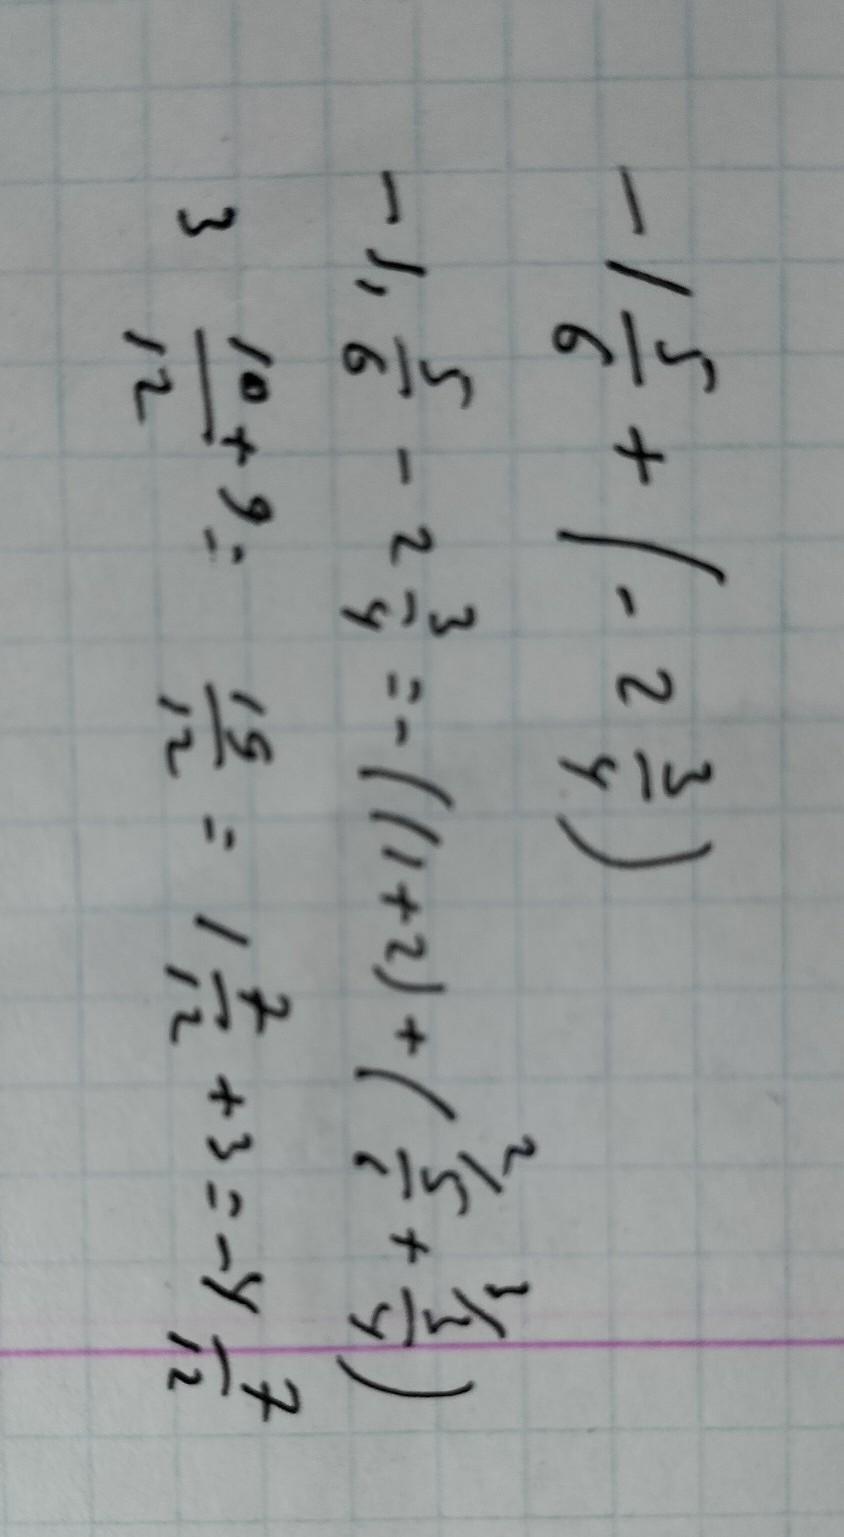 -1 5/6 + (-2 3/4)
-1, 5/6 - 2 3/4 = -((1+2)+(²/5/6 + ³/3/4)
3 10/12 + 9 = 19/12 = 1 7/12 + 3 = -4 7/12